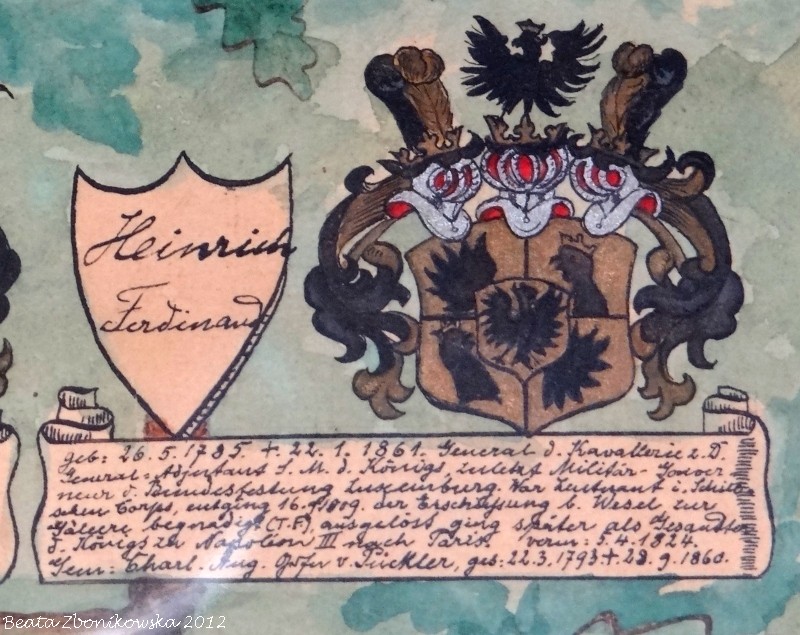 Heinrich
Ferdinand
geb: 26.5.1785. + 22.1.1861. General d. Kavallerie z.D.
General-Adjutant S.M.d. Königs, zuletzt Militär-Gouver-
neur d. Bundesfestung Luxemburg. War Leutnant i. Schill-
schen Corps, entging 16.9.1809. der Erschießung b. Wesel zur
Galeere begnadigt (T.F.), ausgelöst ging später als Gesandter
d. Königs zu Napoleon III nach Paris. verm: 5.4.1824.
Gem: Charl. Aug. Gräfin v. Pückler, geb: 22.3.1793 + 28.9.1860.
Beata Zbonikowska 2012